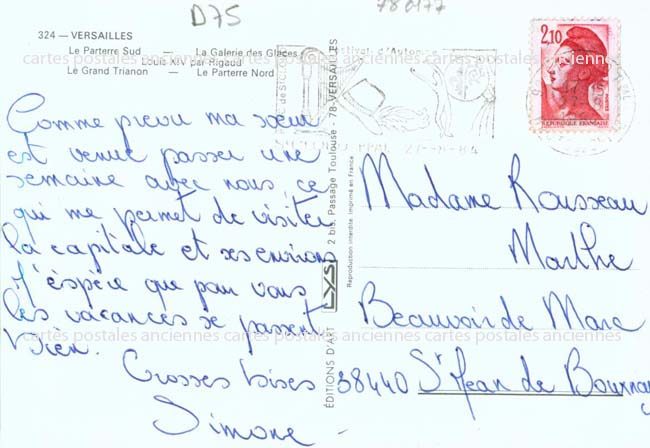 D75
780177
324 — VERSAILLES
Le Parterre Sud — La Galerie des Glaces
Louis XIV par Rigaud
Le Grand Trianon — Le Parterre Nord
Festival d'Automne
2,10
REPUBLIQUE FRANÇAISE
cartes postales anciennes cartes postales anciennes
Comme prévu ma sœur
est venue passer une
semaine avec nous, ce
qui me permet de visiter
la capitale et ses environs
J'espère que pour vous
les vacances se passent
bien.
Grosses bises
Simone
ÉDITIONS D'ART LYS 2 bis, Passage Toulouse - 78-VERSAILLES
Reproduction interdite. Imprimé en France
Madame Rousseau
Marthe
Beauvoir de Marc
38440 St Jean de Bournay
cartes postales anciennes cartes postales anciennes